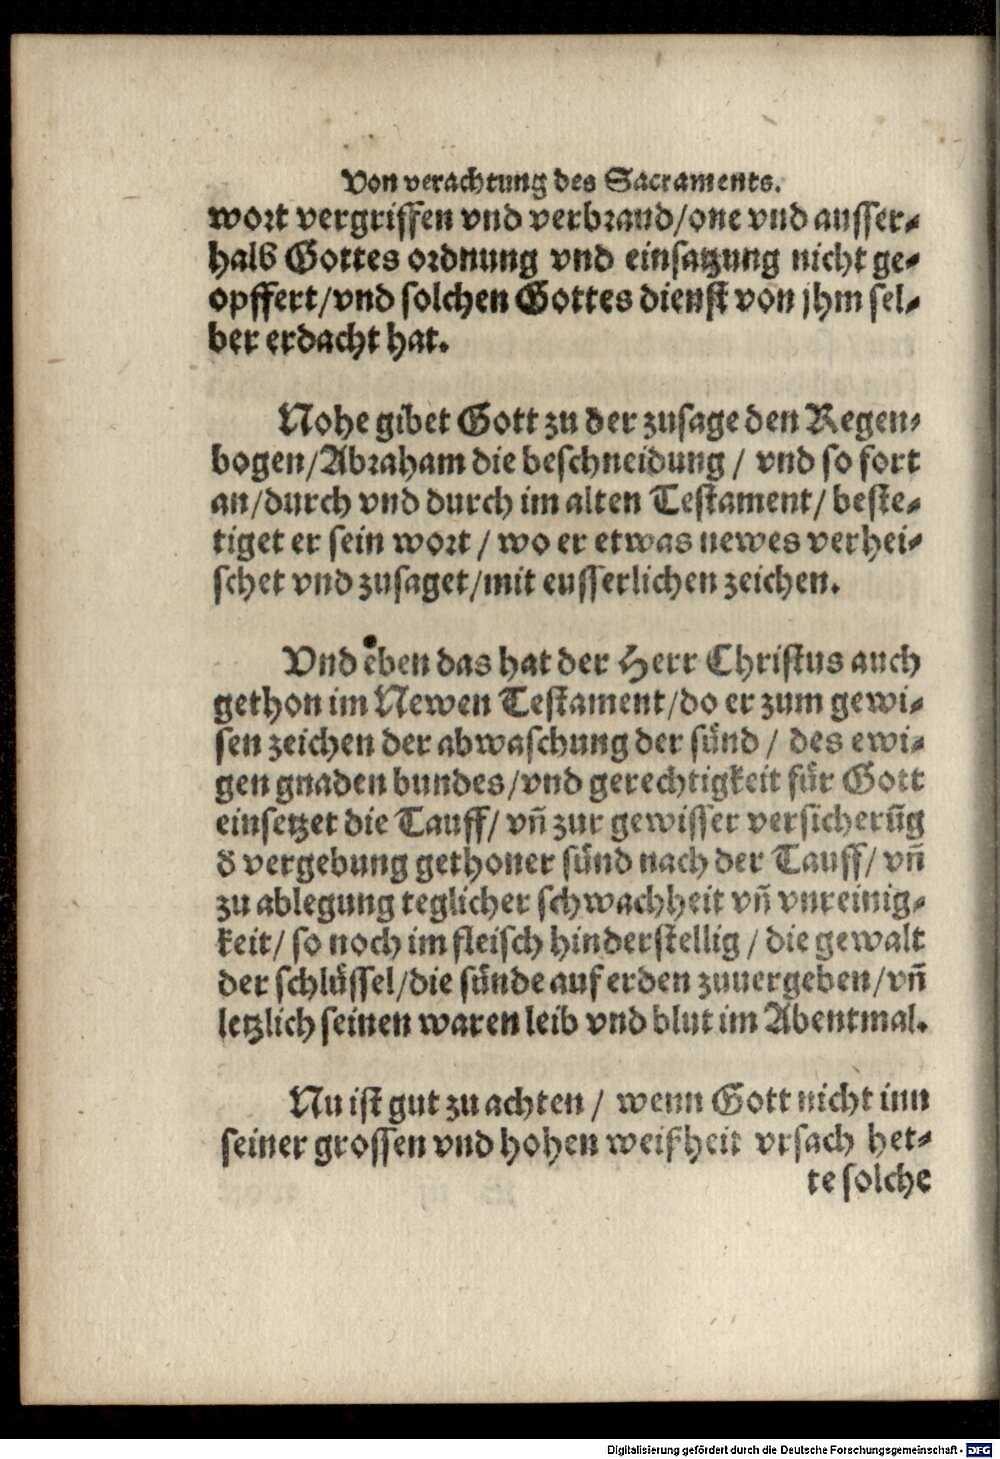 Von verachtung des Sacraments.
wort vergriffen vnd verbrand/one vnd ausser-
halb Gottes ordnung vnd einsatzung nicht ge-
opffert/vnd solchen Gottes dienst von jhm sel-
ber erdacht hat.
Nohe gibet Gott zu der zusage den Regen-
bogen/Abraham die beschneidung / vnd so fort
an/durch vnd durch im alten Testament/ beste-
tiget er sein wort / wo er etwas newes verhei-
schet vnd zusaget/mit eusserlichen zeichen.
Vnd eben das hat der Herr Christus auch
gethon im Newen Testament/do er zum gewi-
sen zeichen der abwaschung der sünd / des ewi-
gen gnaden bundes/vnd gerechtigkeit für Gott
einsetzet die Tauff/ vn̄ zur gewisser versicherūg
d̄ vergebung gethoner sünd nach der Tauff/ vn̄
zu ablegung teglicher schwachheit vn̄ vnreinig-
keit/ so noch im fleisch hinderstellig / die gewalt
der schlüssel/die sünde auf erden zuuergeben/vn̄
letzlich seinen waren leib vnd blut im Abentmal.
Nu ist gut zu achten / wenn Gott nicht inn
seiner grossen vnd hohen weißheit vrsach het-
te solche
Digitalisierung gefördert durch die Deutsche Forschungsgemeinschaft - DFG